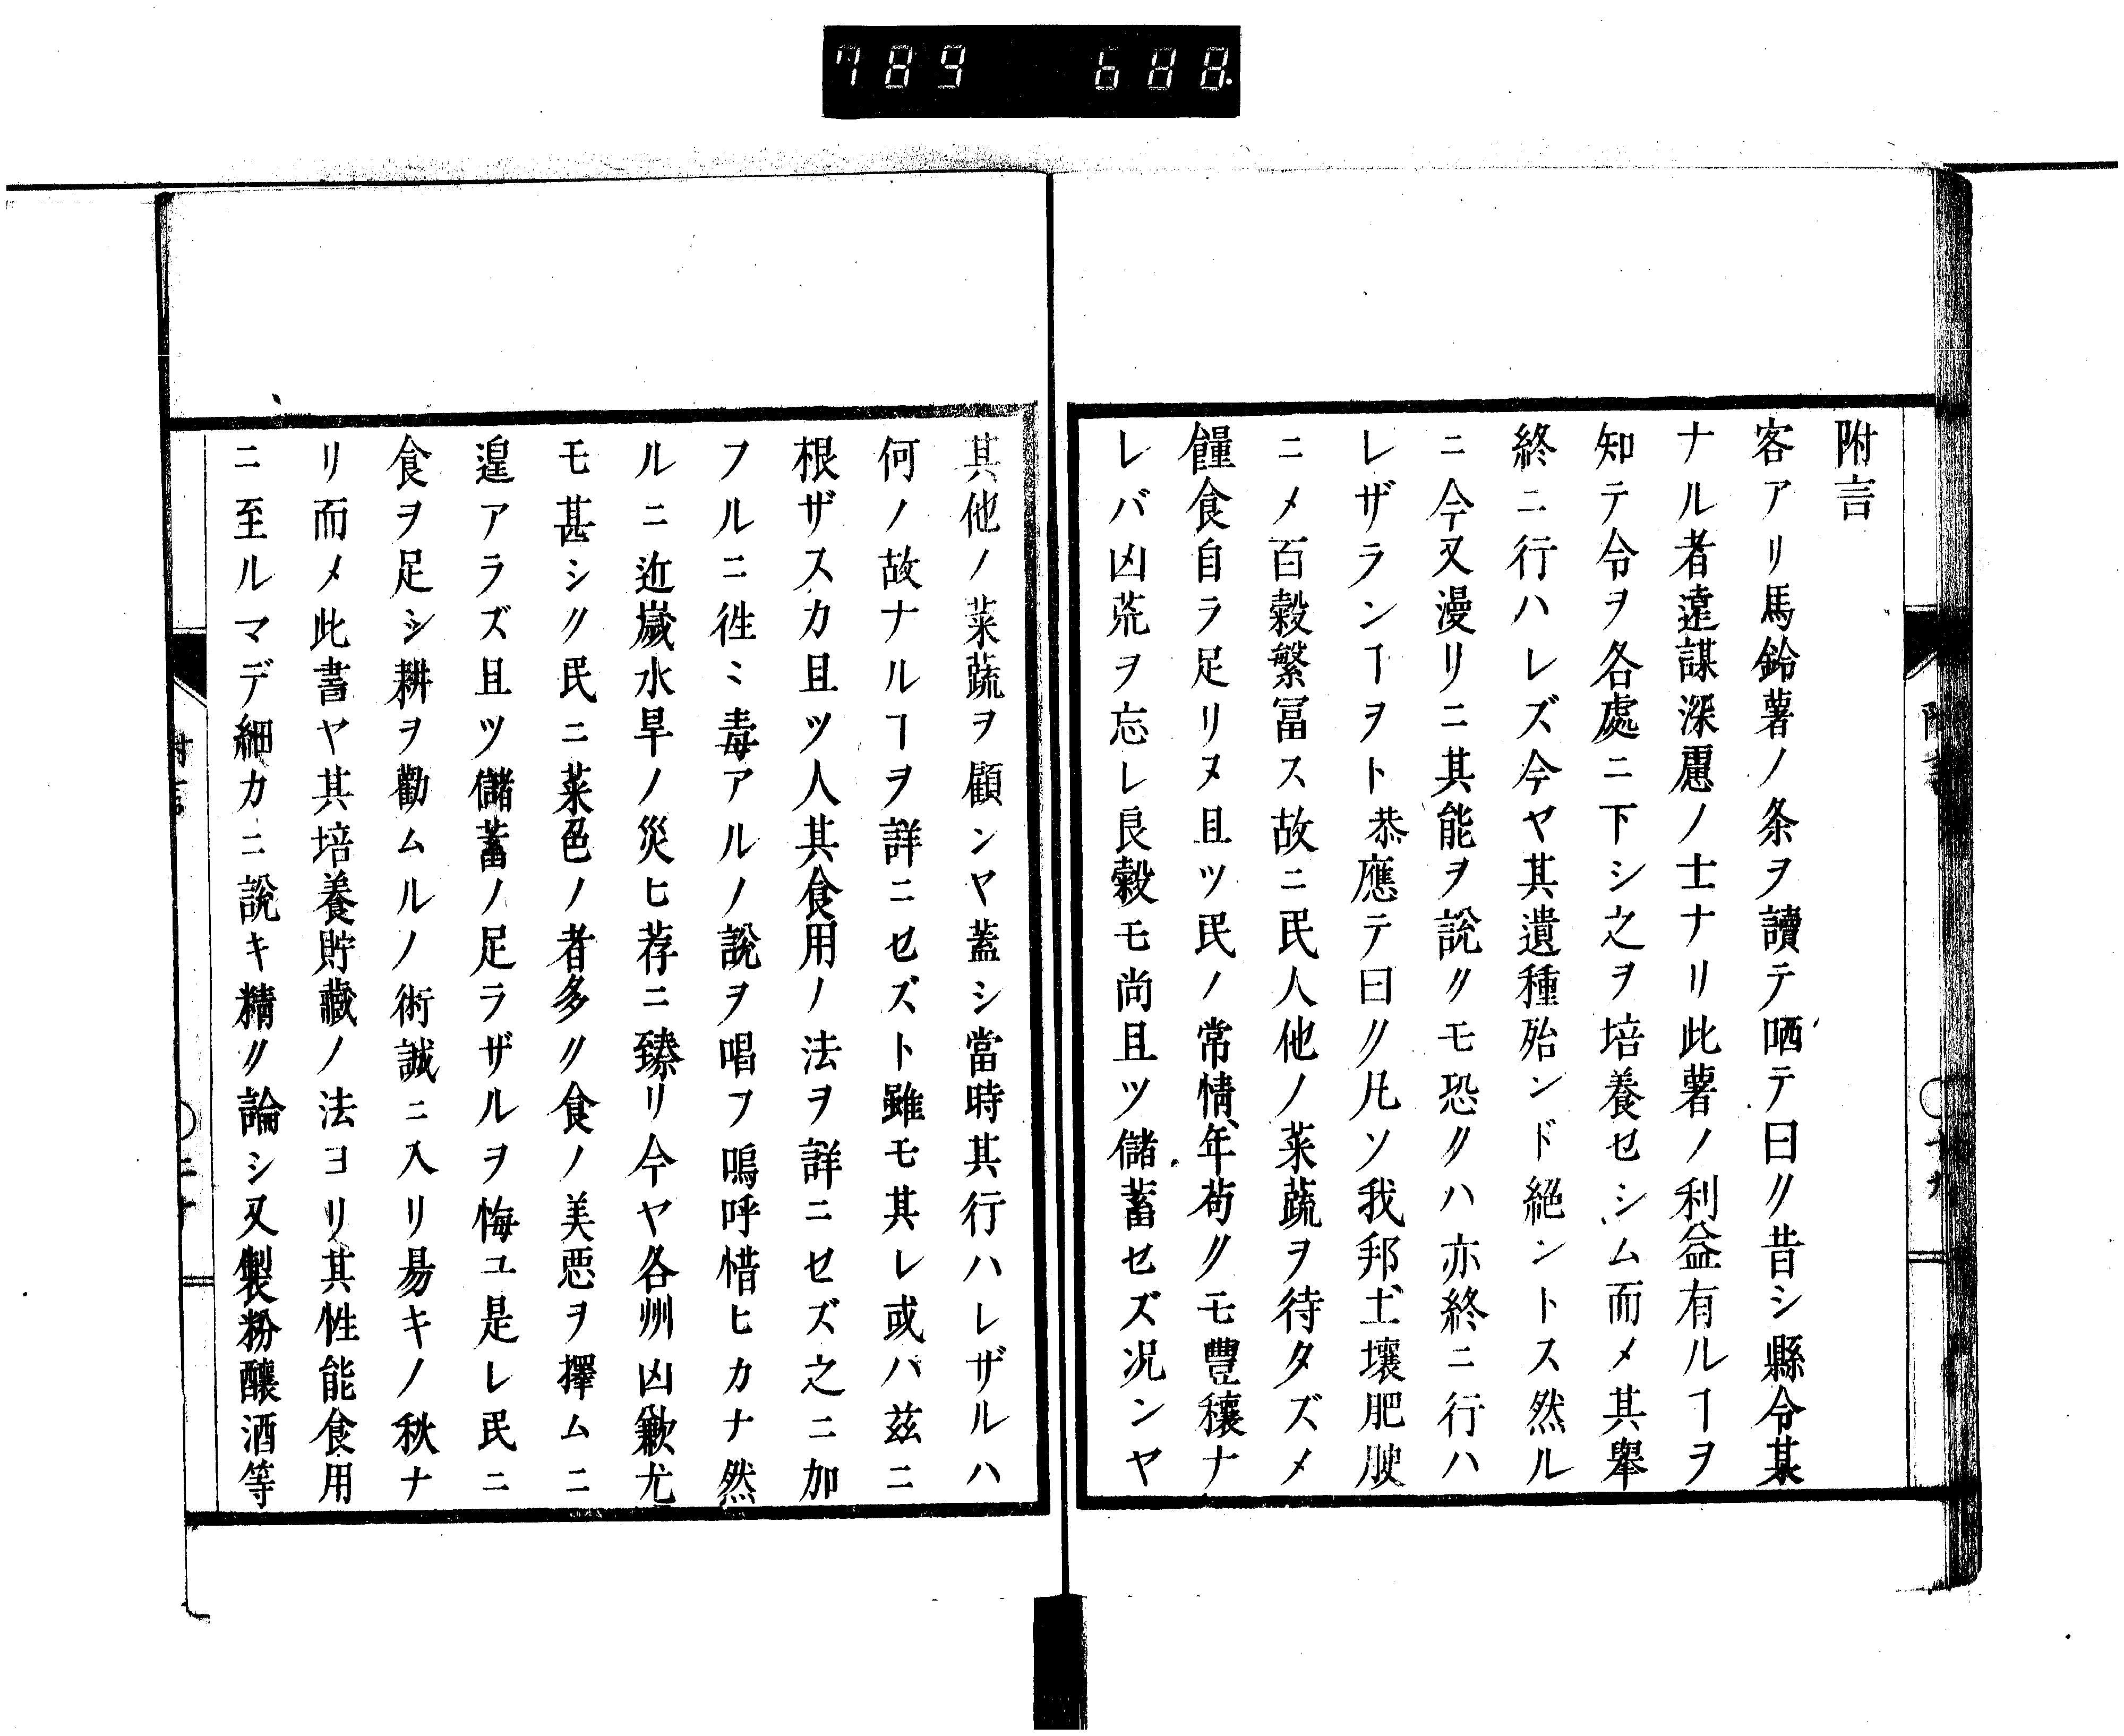 789 688
附言
客アリ馬鈴薯ノ条ヲ讀テ哂テ曰ク昔シ縣令某
ナル者遠謀深慮ノ士ナリ此薯ノ利益有ルヿヲ
知テ令ヲ各處ニ下シ之ヲ培養セシム而メ其舉
終ニ行ハレズ今ヤ其遺種殆ンド絕ントス然ル
ニ今又漫リニ其能ヲ說クモ恐クハ亦終ニ行ハ
レザランヿヲト恭應テ曰ク凡ソ我邦土壤肥腴
ニメ百穀繁冨ス故ニ民人他ノ菜蔬ヲ待タズメ
饘食自ラ足リヌ且ツ民ノ常情、年苟クモ豐穰ナ
レバ凶荒ヲ忘レ良穀モ尚且ツ儲蓄セズ况ンヤ
其他ノ菜蔬ヲ顧ンヤ蓋シ當時其行ハレザルハ
何ノ故ナルヿヲ詳ニセズト雖モ其レ或ハ兹ニ
根ザスカ且ツ人其食用ノ法ヲ詳ニセズ之ニ加
フルニ徃ミ毒アルノ說ヲ唱フ嗚呼惜ヒカナ然
ルニ近嵗水旱ノ災ヒ荐ニ臻リ今ヤ各州凶歉尤
モ甚シク民ニ菜色ノ者多ク食ノ美惡ヲ擇ムニ
遑アラズ且ツ儲蓄ノ足ラザルヲ悔ユ是レ民ニ
食ヲ足シ耕ヲ勸ムルノ術誠ニ入リ昜キノ秋ナ
リ而メ此書ヤ其培養貯藏ノ法ヨリ其性能食用
ニ至ルマデ細カニ說キ精ク論シ又製粉釀酒等
附言
十九